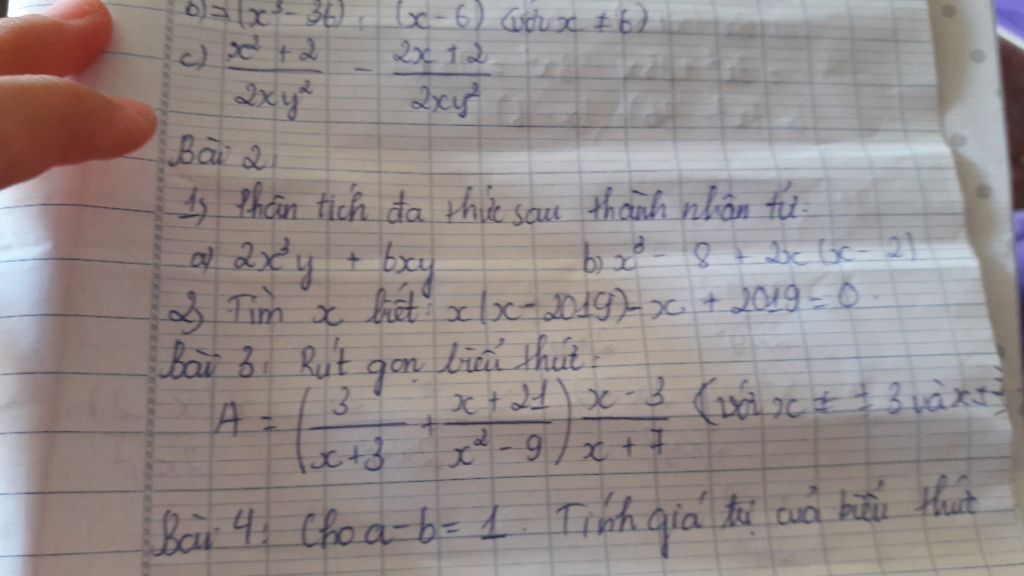 b) = (x³ - 36) : (x - 6) (với x ≠ 6)
c) \frac{x² + 2}{2xy²} - \frac{2x + 2}{2xy²}
Bài 2
1) Phân tích đa thức sau thành nhân tử.
a) 2x³y + 6xy b) x³ - 8 + 2x(x - 2)
2) Tìm x biết: x(x - 2019) - x + 2019 = 0.
Bài 3: Rút gọn biểu thức:
A = (\frac{3}{x+3} + \frac{x + 21}{x² - 9}) \frac{x - 3}{x + 7} (với x ≠ ± 3 và x ≠
Bài 4: Cho a - b = 1. Tính giá trị của biểu thức